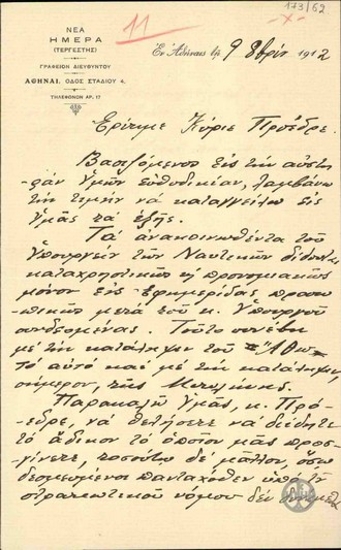 173/52
11
ΝΕΑ
ΗΜΕΡΑ
(ΤΕΡΓΕΣΤΗΣ)
ΓΡΑΦΕΙΟΝ ΔΙΕΥΘΥΝΤΟΥ
ΑΘΗΝΑΙ, ΟΔΟΣ ΣΤΑΔΙΟΥ 4.
ΤΗΛΕΦΩΝΟΝ ΑΡ. 17
Ἐν Ἀθήναις τῇ 9 8βρίου 1912
Ἐρίτιμε Κύριε Πρόεδρε.
Βασιζόμενος εἰς τὴν αὐστη-
ρὰν Ὑμῶν εὐθυδικίαν, λαμβάνω
τὴν τιμὴν νὰ καταγγείλω εἰς
Ὑμᾶς τὰ ἑξῆς.
Τὰ ἀνακοινωθέντα τοῦ
Ὑπουργείου τῶν Ναυτικῶν δίδονται
καταχρηστικῶς ἢ προνομιακῶς
μόνον εἰς ἐφημερίδας προσω-
πικῶς μετὰ τοῦ κ. Ὑπουργοῦ
συνδεομένας. Τοῦτο συνέβη
μὲ τὴν κατάληψιν τοῦ "Ἄθω"
τὸ αὐτὸ καὶ μὲ τὴν κατάληψιν,
σήμερον, τῆς Μυτιλήνης.
Παρακαλῶ Ὑμᾶς, κ. Πρό-
εδρε, νὰ θελήσετε νὰ δείξητε
τὸ ἄδικον τὸ ὁποῖον μᾶς προσ-
γίνεται, τοσοῦτο δὲ μᾶλλον, ὅσω
δεσμευόμενοι πανταχόθεν ὑπὸ τοῦ
στρατιωτικοῦ νόμου δὲν